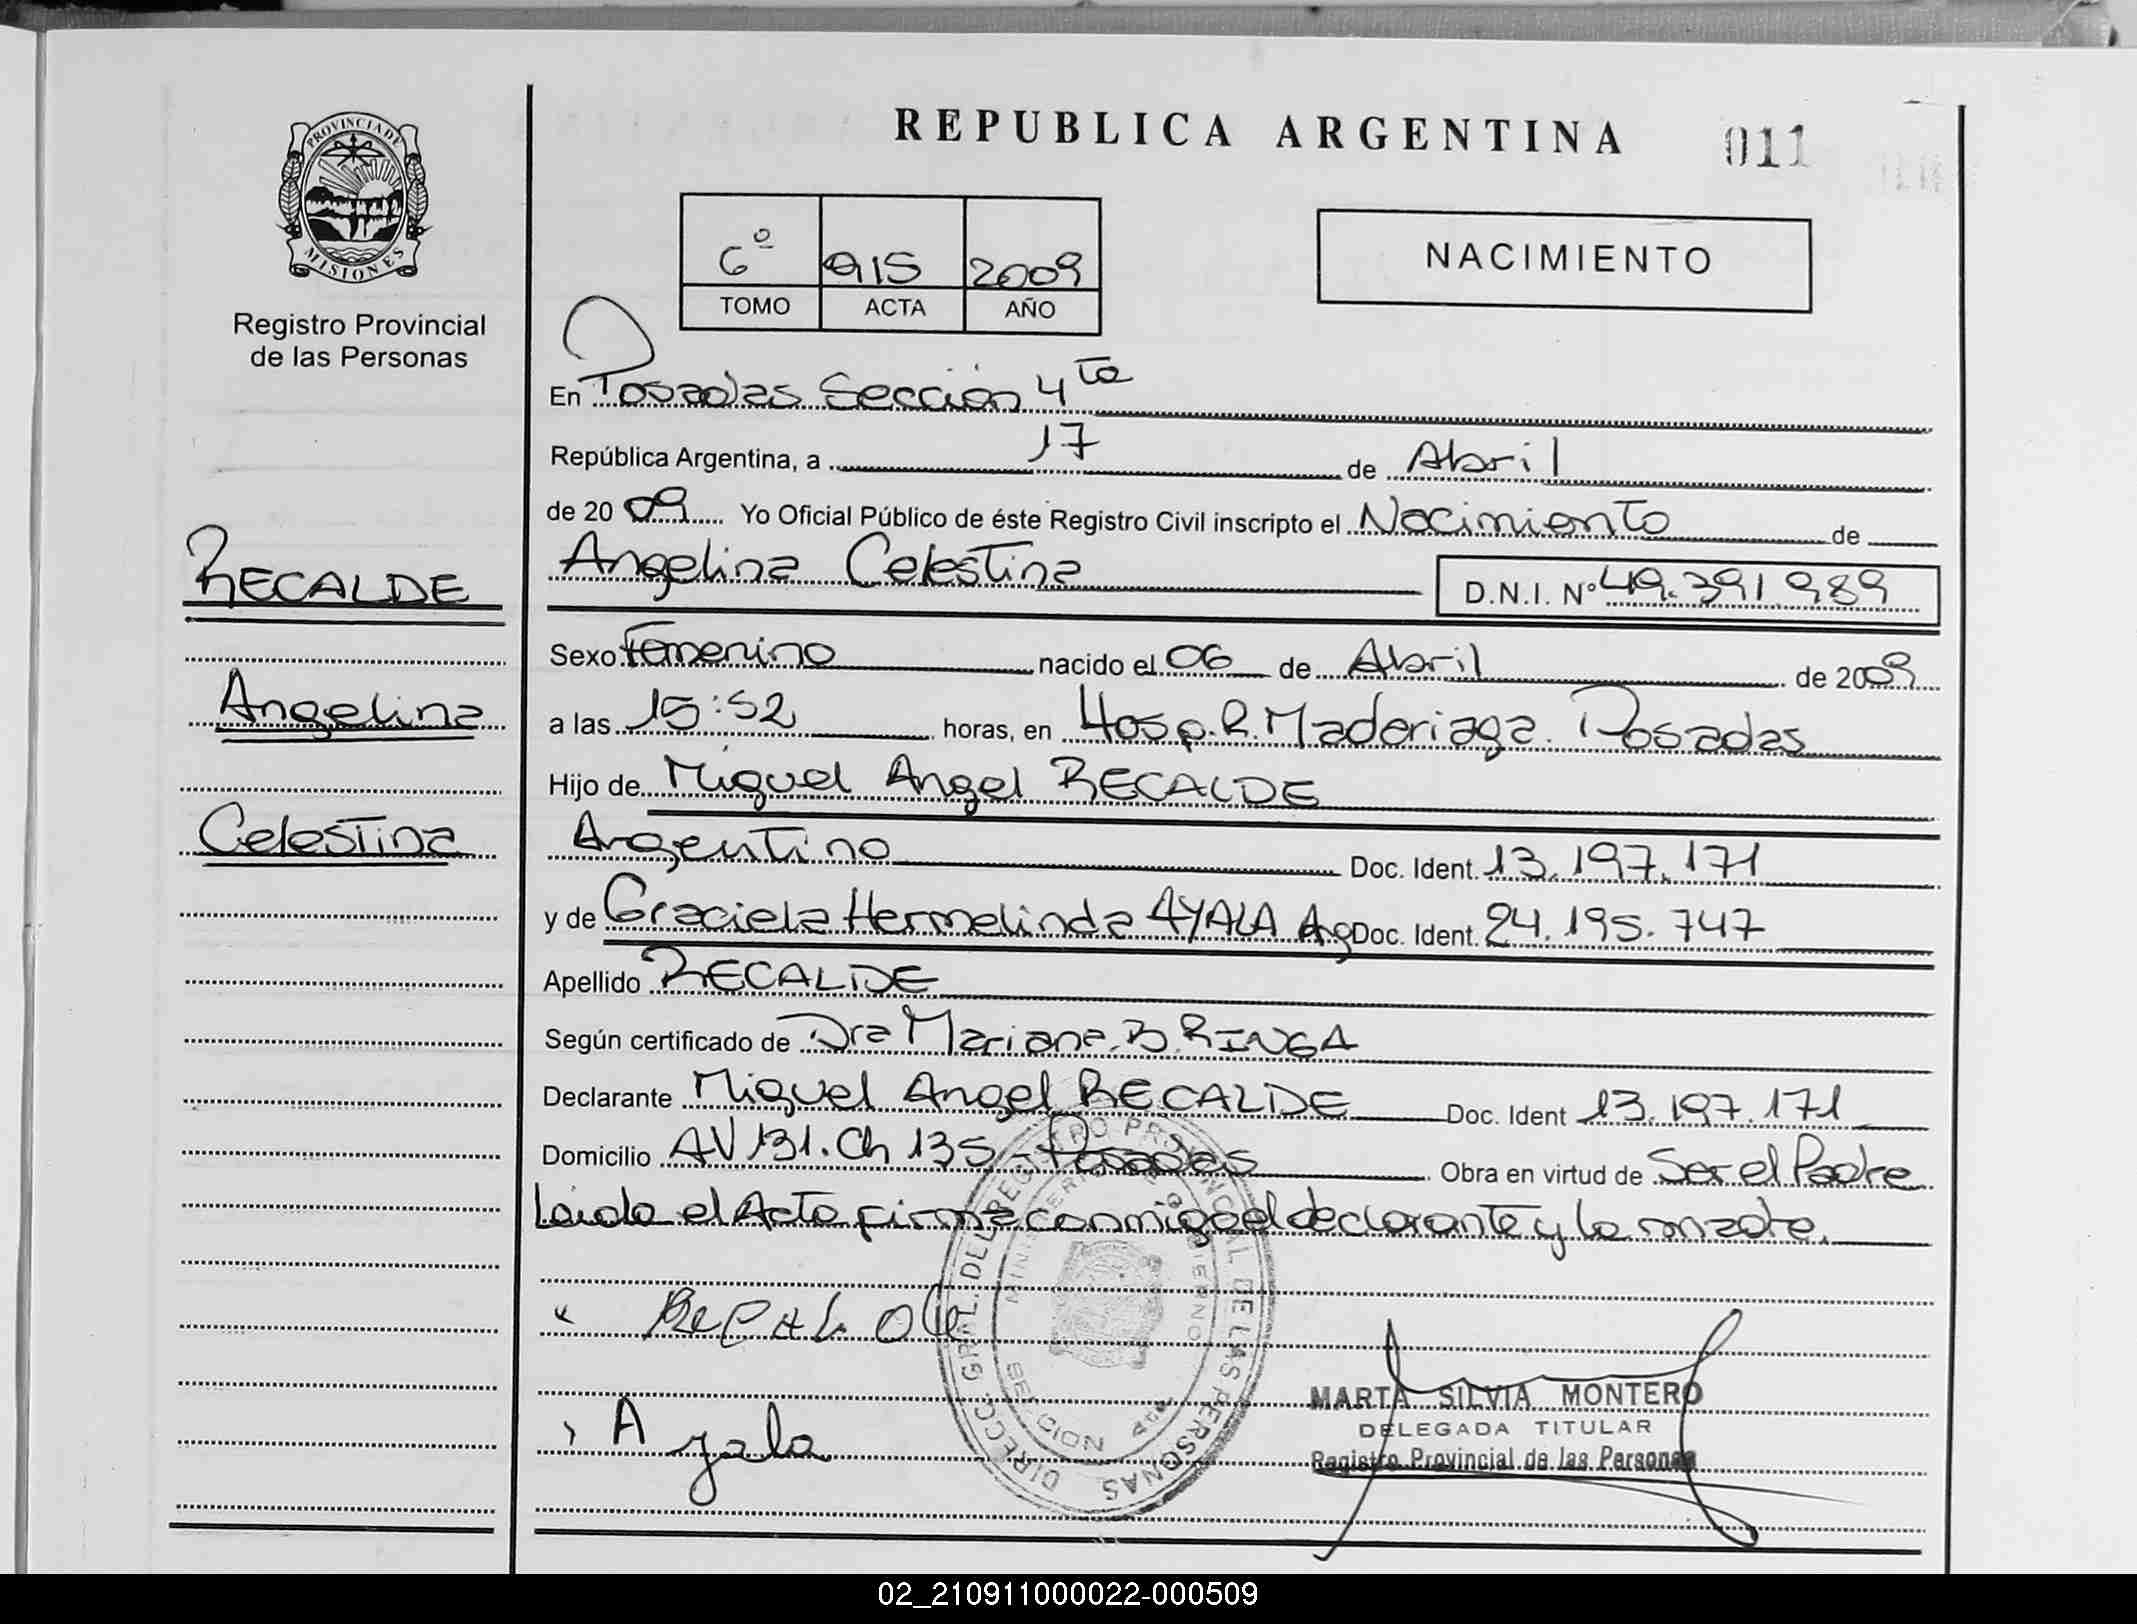 PROVINCIA DE
MISIONES
Registro Provincial
de las Personas
RECALDE
Angelina
Celestina
REPUBLICA ARGENTINA
011
6º 915 2009
TOMO ACTA AÑO
NACIMIENTO
En Posadas Sección 4ta
República Argentina, a 17 de Abril
de 2009 Yo Oficial Público de éste Registro Civil inscripto el Nacimiento de
Angelina Celestina D.N.I. Nº 49.391.989
Sexo Femenino nacido el 06 de Abril de 2009
a las 15:52 horas, en Hosp. R. Madariaga. Posadas
Hijo de Miguel Angel RECALDE
Argentino Doc. Ident. 13.197.171
y de Graciela Hermelinda AYALA Arg Doc. Ident. 24.195.747
Apellido RECALDE
Según certificado de Dra Mariana B. RINGA
Declarante Miguel Angel RECALDE Doc. Ident 13.197.171
Domicilio AV 131. Ch 135 - Posadas Obra en virtud de Ser el Padre
Leida el Acta firma conmigo el declarante y la madre.
Ayala
DIRECC. GRAL. DEL REGISTRO PROVINCIAL DE LAS PERSONAS
MARTA SILVIA MONTERO
DELEGADA TITULAR
Registro Provincial de las Personas
02_210911000022-000509